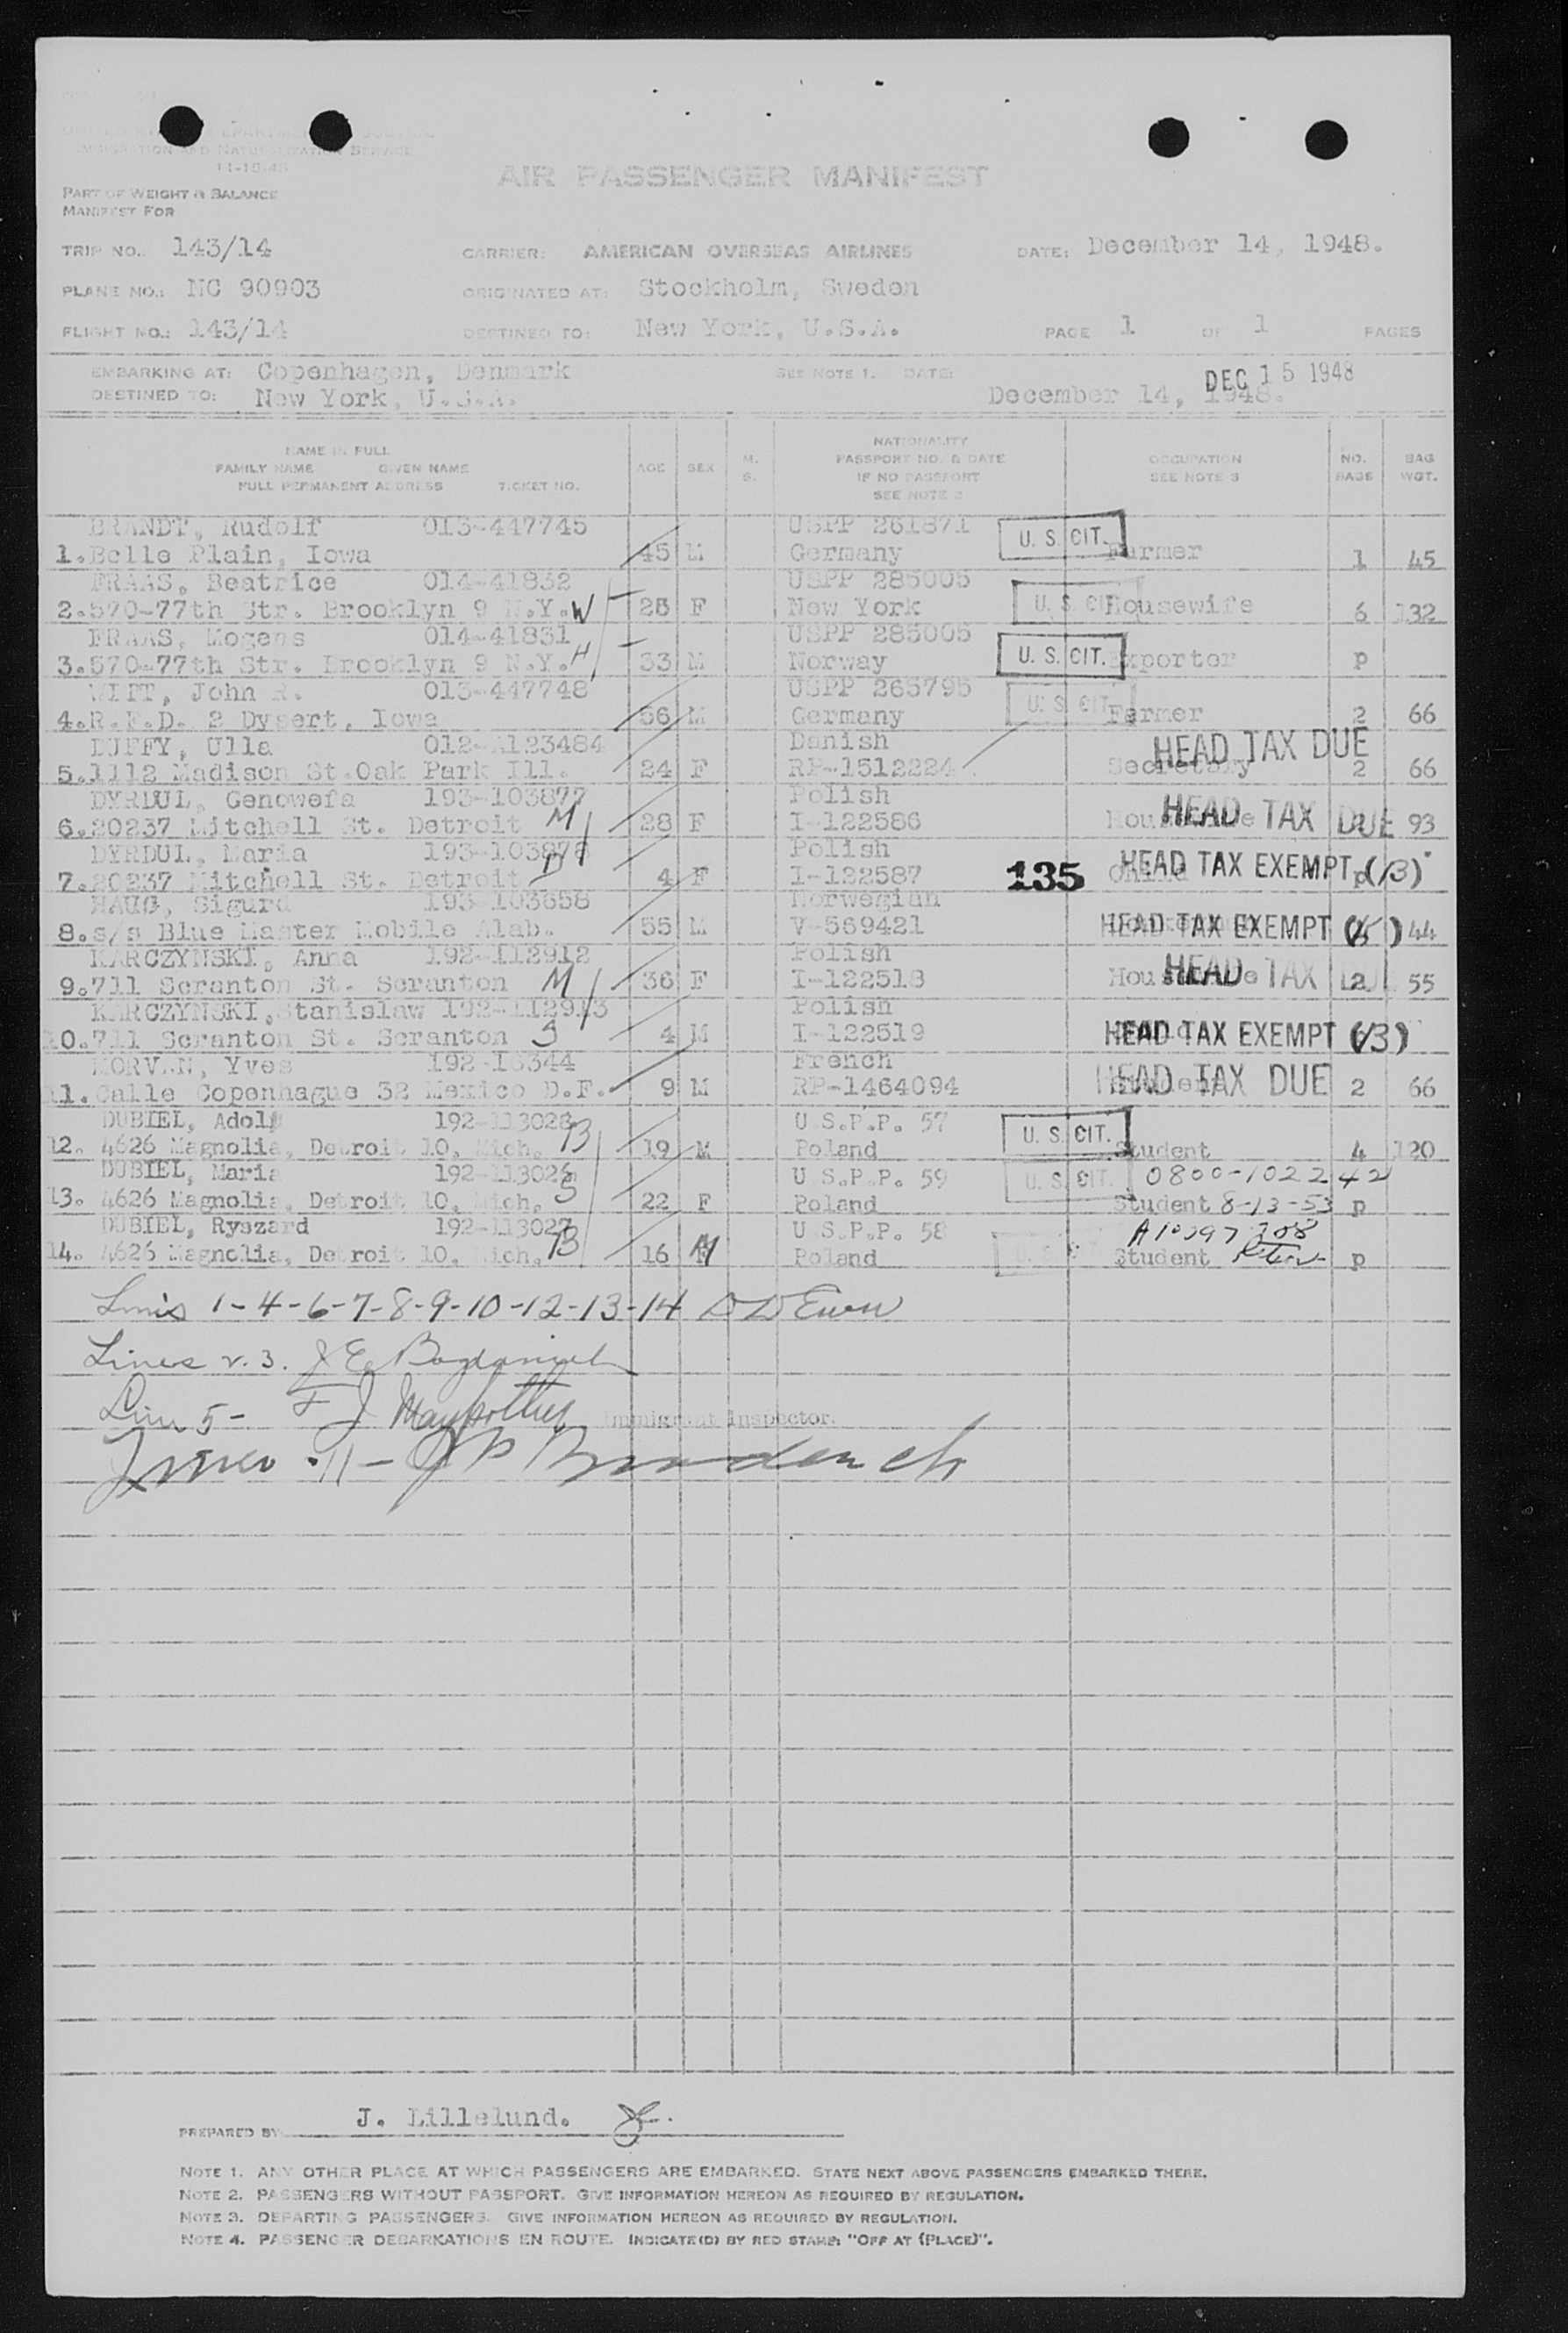 IMMIGRATION AND NATURALIZATION SERVICE
11-15-45
PART OF WEIGHT & BALANCE
MANIFEST FOR
AIR PASSENGER MANIFEST
TRIP NO. 143/14 CARRIER: AMERICAN OVERSEAS AIRLINES DATE: December 14, 1948.
PLANE NO.: NC 90903 ORIGINATED AT: Stockholm, Sweden
FLIGHT NO.: 143/14 DESTINED TO: New York, U.S.A. PAGE 1 OF 1 PAGES
EMBARKING AT: Copenhagen, Denmark SEE NOTE 1. DATE: DEC 15 1948
DESTINED TO: New York, U.S.A. December 14, 1948.
NAME IN FULL
FAMILY NAME GIVEN NAME
FULL PERMANENT ADDRESS TICKET NO.
AGE SEX M. S.
NATIONALITY
PASSPORT NO. & DATE
IF NO PASSPORT
SEE NOTE 2
OCCUPATION
SEE NOTE 3
NO. BAGS
BAG WGT.
BRANDT, Rudolf 013-447745 USPP 261871 U. S. CIT.
1. Belle Plain, Iowa 45 M Germany Farmer 1 45
FRAAS, Beatrice 014-41832 USPP 285005 U. S. CIT.
2. 570-77th Str. Brooklyn 9 N.Y. W 25 F New York Housewife 6 132
FRAAS, Mogens 014-41831 USPP 285005 U. S. CIT.
3. 570-77th Str. Brooklyn 9 N.Y. H 33 M Norway Exporter p
WITT, John R. 013-447748 USPP 265795 U. S. CIT.
4. R.F.D. 2 Dysert, Iowa 56 M Germany Farmer 2 66
DUFFY, Ulla Danish HEAD TAX DUE
5. 1112 Madison St. Oak Park Ill. 24 F RP-1512224 Secretary 2 66
DYRDUL, Genowefa 193-103877 Polish HEAD TAX DUE
6. 20237 Mitchell St. Detroit M 28 F I-122586 93
DYRDUL, Maria 193-103878 Polish HEAD TAX EXEMPT (13)
7. 20237 Mitchell St. Detroit D 4 F I-122587 135 p
HAUG, Sigurd 193-103658 Norwegian
8. s/s Blue Master Mobile Alab. 55 M V-569421 HEAD TAX EXEMPT 44
KARCZYNSKI, Anna 192-112912 Polish HEAD TAX
9. 711 Scranton St. Scranton M 36 F I-122518 2 55
KARCZYNSKI, Stanislaw 192-112913 Polish
10. 711 Scranton St. Scranton S 4 M I-122519 HEAD TAX EXEMPT (13)
MORVAN, Yves French
11. Calle Copenhague 32 Mexico D.F. 9 M RP-1464094 Student HEAD TAX DUE 2 66
DUBIEL, Adolf 192-113028 U.S.P.P. 57 U. S. CIT.
12. 4626 Magnolia, Detroit 10, Mich. B 19 M Poland Student 4 120
DUBIEL, Maria 192-113026 U.S.P.P. 59 U. S. CIT. 0800-102242
13. 4626 Magnolia, Detroit 10, Mich. S 22 F Poland Student 8-13-53 p
DUBIEL, Ryszard 192-113027 U.S.P.P. 58
14. 4626 Magnolia, Detroit 10, Mich. B 16 M Poland Student p
Lines 1-4-6-7-8-9-10-12-13-14
Lines 2.3. J E
Line 5- F J Immigrant Inspector.
11 -
PREPARED BY J. Lillelund.
NOTE 1. ANY OTHER PLACE AT WHICH PASSENGERS ARE EMBARKED. STATE NEXT ABOVE PASSENGERS EMBARKED THERE.
NOTE 2. PASSENGERS WITHOUT PASSPORT. GIVE INFORMATION HEREON AS REQUIRED BY REGULATION.
NOTE 3. DEPARTING PASSENGERS. GIVE INFORMATION HEREON AS REQUIRED BY REGULATION.
NOTE 4. PASSENGER DEBARKATIONS EN ROUTE. INDICATE(D) BY RED STAMP: "OFF AT (PLACE)".